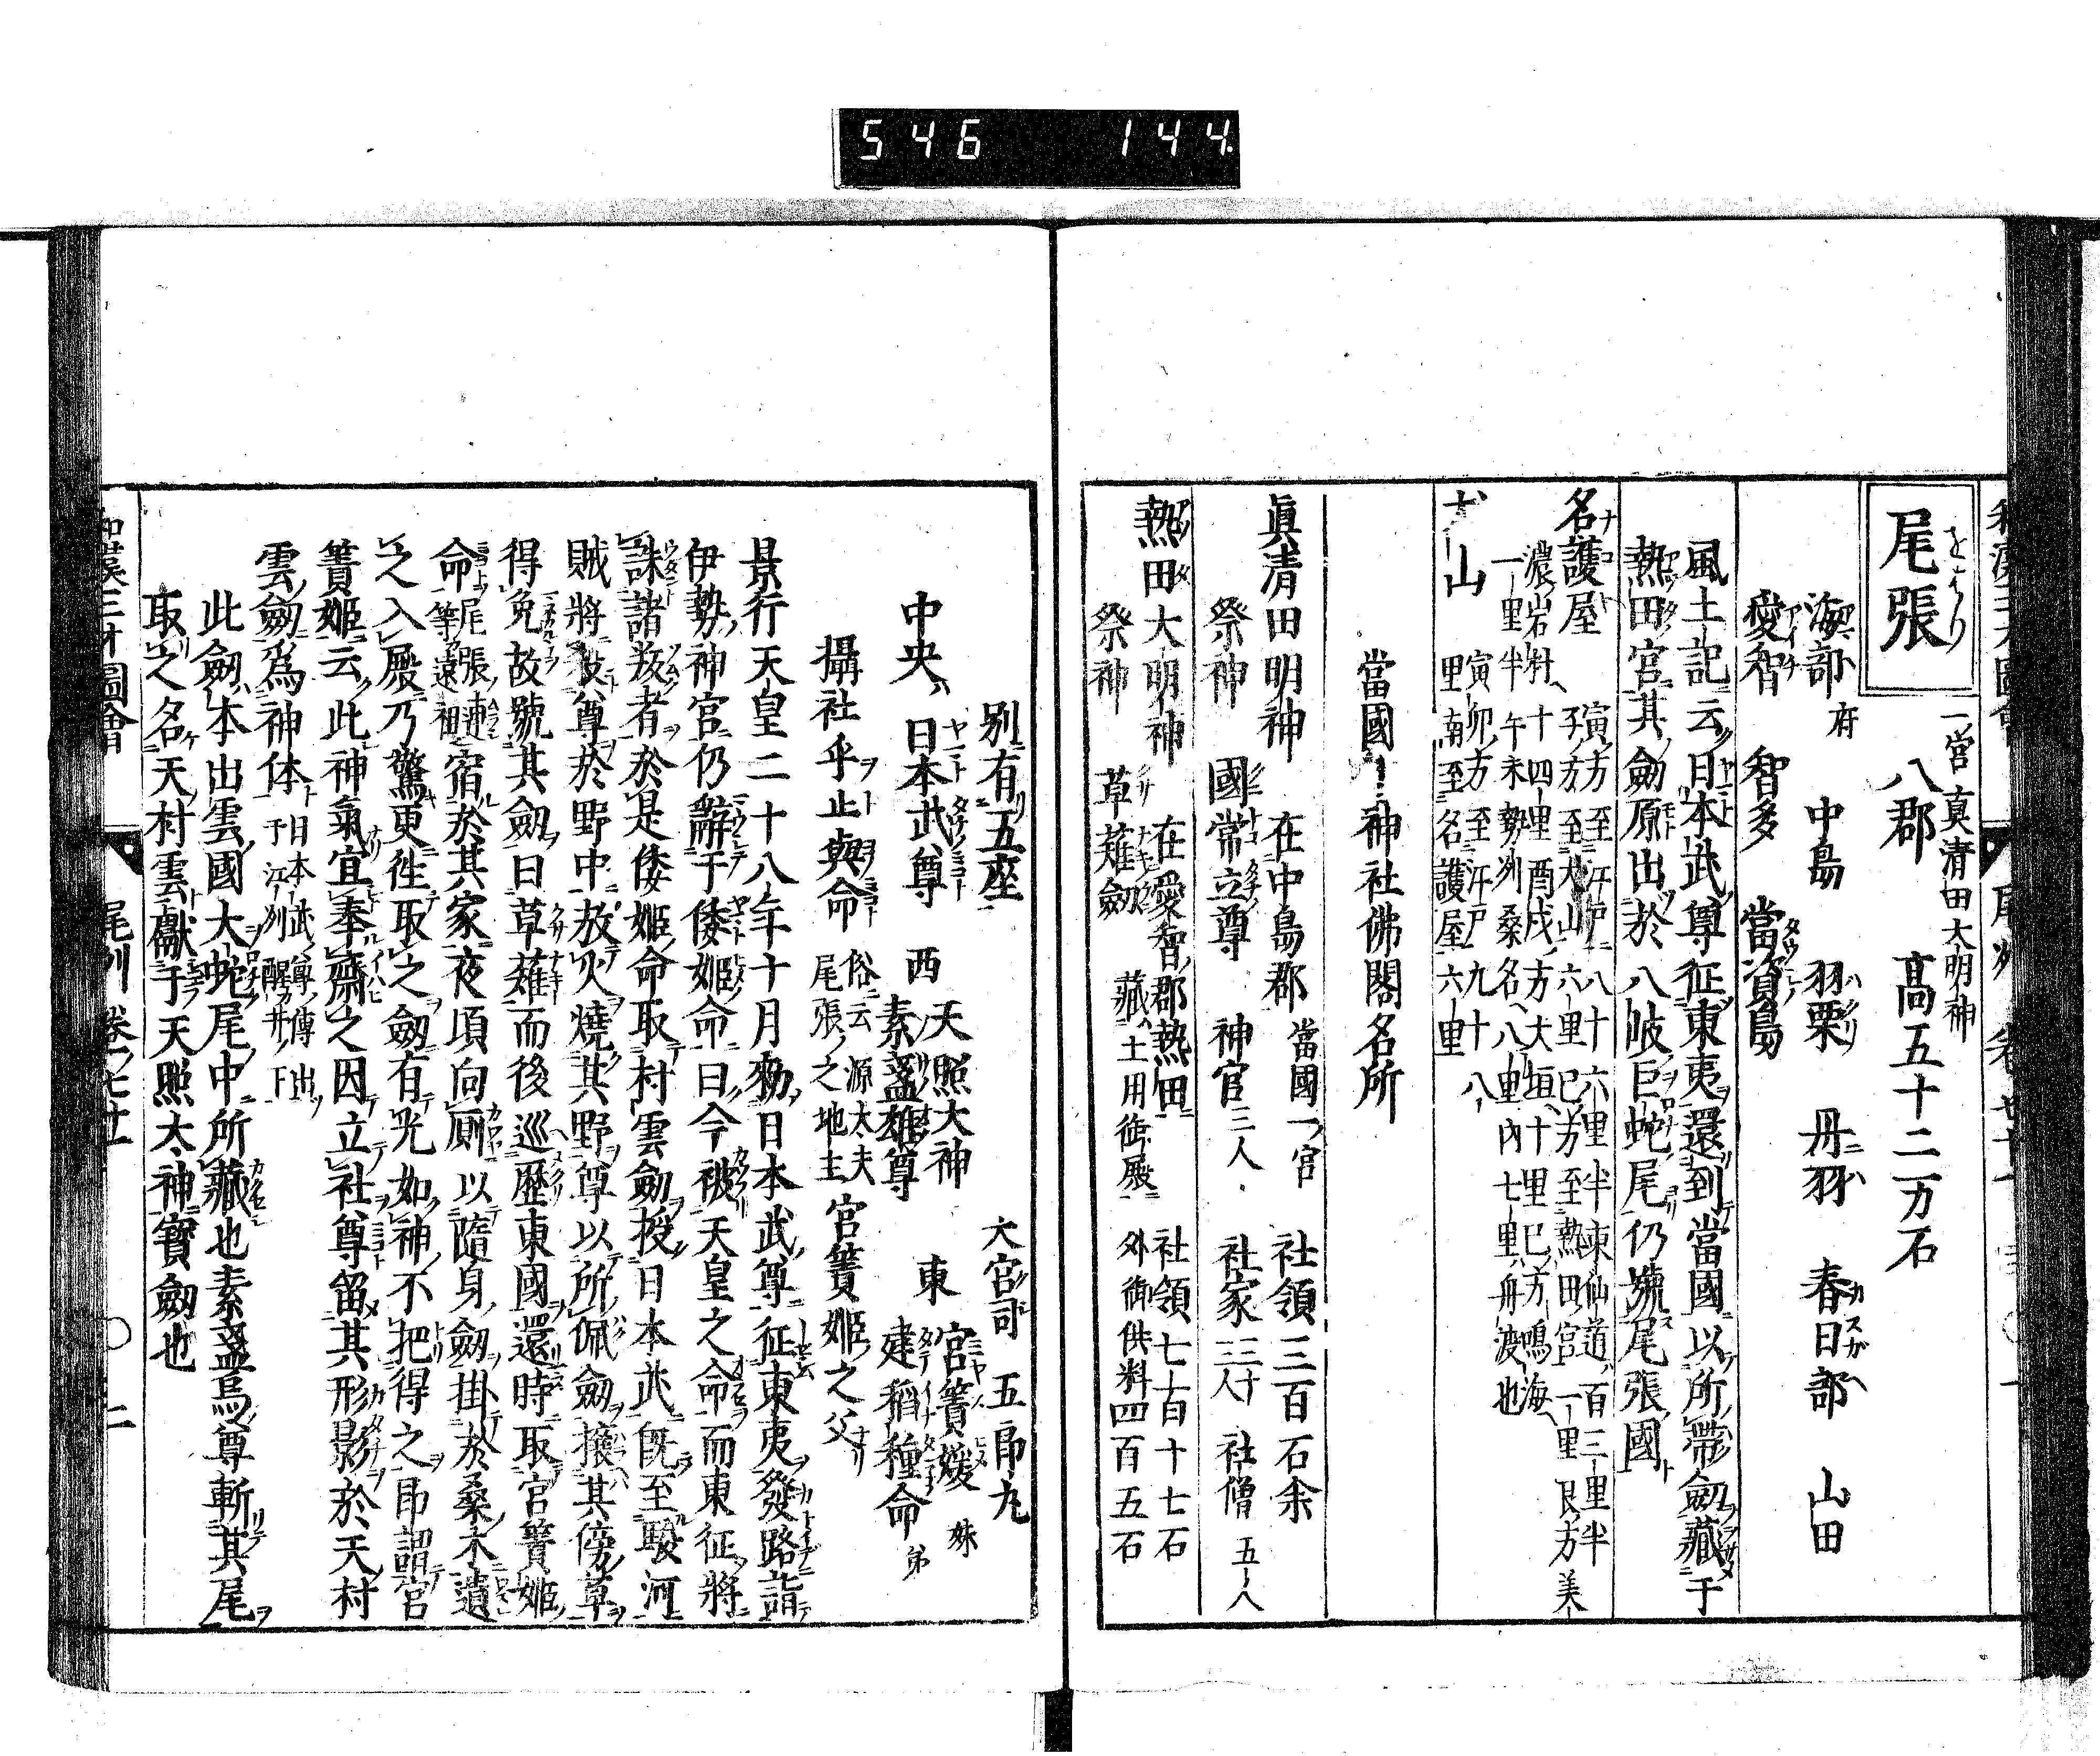 546 144
尾張
をはり
一宮真清田大明神
八郡 高五十二万石
海部 府 中島 羽栗 丹羽 春日部 山田
愛智 智多 當須島
風土記云日本武尊征東夷還到當國以所帶劔藏于
熱田宮其劔原出於八岐巨蛇尾仍號尾張國
名護屋
寅方至江戸八十六里半東仙道百三里半
子方至犬山六里巳方至熱田宮一里艮方美
濃岩村十四里酉戌方大垣十里巳方鳴海
一里半午未勢州桑名八里内七里舟渡也
犬山
寅卯方至江戸九十八
里南至名護屋六里
當國神社佛閣名所
眞清田明神 在中島郡 當國一宮 社領三百石余
祭神 國常立尊 神官三人 社家三十三人 社僧五人
熱田大明神 在愛智郡熱田 社領七百十七石
祭神 草薙劔 藏土用御殿 外御供料四百五石
別有五座 大宮司 五郎丸
中央 日本武尊 西 天照大神 素盞雄尊 東 宮簀媛 妹 建稲種命 弟
攝社乎止與命 俗云源太夫 尾張之地主 宮簀姫之父
景行天皇二十八年十月勅日本武尊征東夷發路詣
伊勢神宮仍辭于倭姫命曰今被天皇之命而東征將
誅諸叛者於是倭姫命取村雲劔授日本武既至駿河
賊將欺尊於野中放火燒其野尊以所佩劔撥其傍草
得免故號其劔曰草薙而後巡歷東國還時取宮簀姫
命 尾張連等遠祖 宿於其家夜頃向厠以隨身劔掛於桑木遺
之入殿乃驚更徃取之劔有光如神不把得之即謂宮
簀姫云此神氣宜奉齋之因立社尊留其形影於天村
雲劔爲神体 日本武尊傳出于江州醒井下
此劔本出雲國大蛇尾中所藏也素盞烏尊斬其尾
取之名天村雲獻于天照太神寶劔也
和漢三才圖會 尾州 卷七十一 二